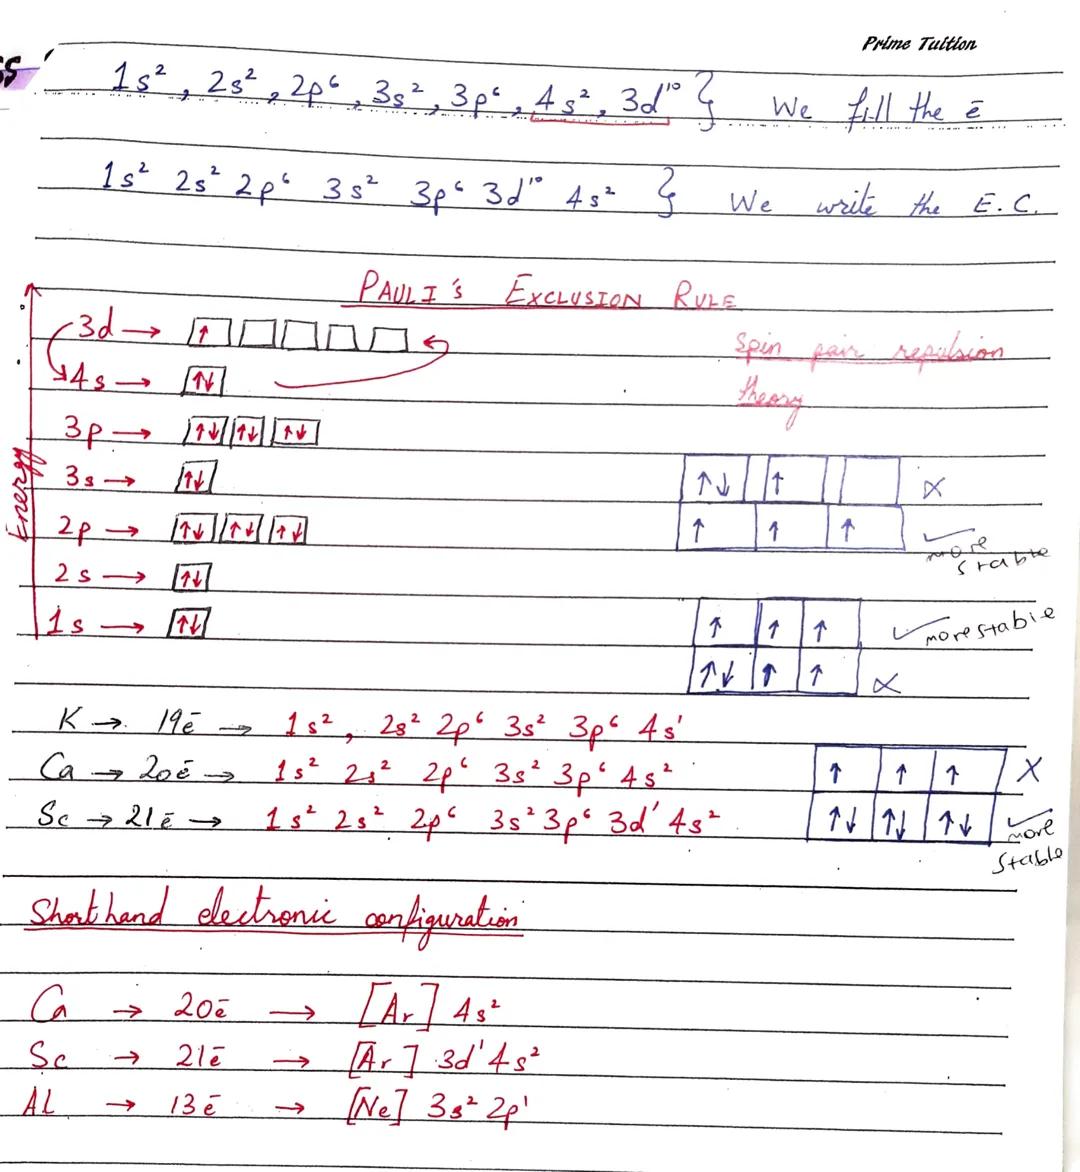 Prime Tuition
1s², 2s², 2p⁶, 3s², 3p⁶, 4s², 3d¹⁰ } We fill the ē
1s² 2s² 2p⁶ 3s² 3p⁶ 3d¹⁰ 4s² } We write the E.C.
PAULI's EXCLUSION RULE
Spin pair repulsion
theory
Energy
3d → ↑
4s → ↑↓
3p → ↑↓ ↑↓ ↑↓
3s → ↑↓
2p → ↑↓ ↑↓ ↑↓
2s → ↑↓
1s → ↑↓
↑↓ ↑ X
↑ ↑ ↑ ✓ more stable
↑ ↑ ↑ ✓ more stable
↑↓ ↑ ↑ X
K → 19ē → 1s², 2s² 2p⁶ 3s² 3p⁶ 4s¹
Ca → 20ē → 1s² 2s² 2p⁶ 3s² 3p⁶ 4s²
Sc → 21ē → 1s² 2s² 2p⁶ 3s² 3p⁶ 3d¹ 4s²
↑ ↑ ↑ X
↑↓ ↑↓ ↑↓ ✓ more stable
Shorthand electronic configuration
Ca → 20ē → [Ar] 4s²
Sc → 21ē → [Ar] 3d¹ 4s²
AL → 13ē → [Ne] 3s² 2p¹